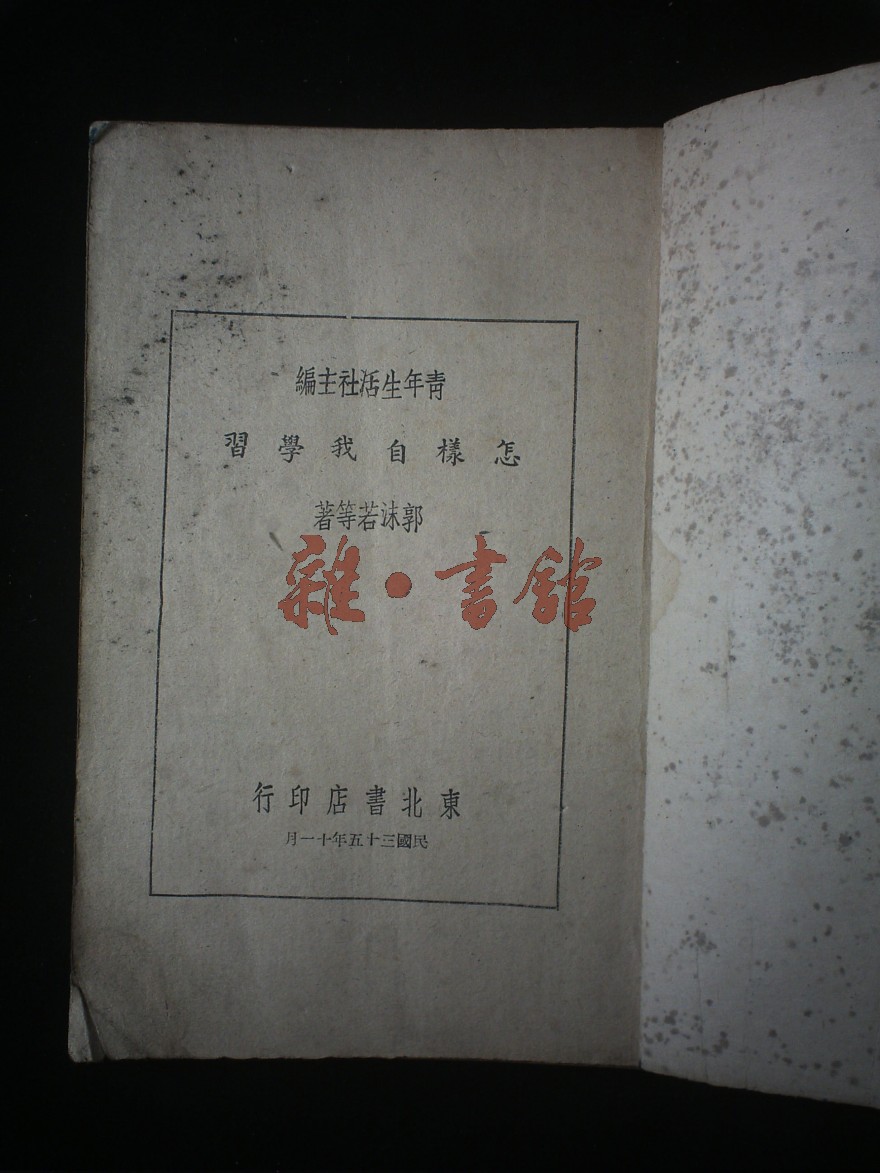 青年生活社主編
怎樣自我學習
郭沫若等著
雜·書館
東北書店印行
民國三十五年十一月